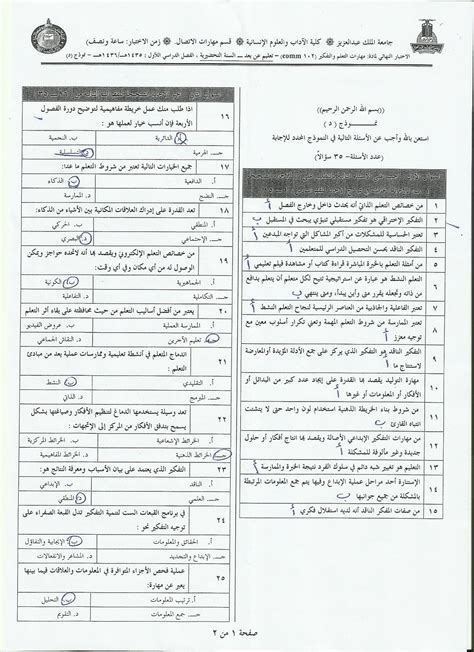 جامعة الملك عبدالعزيز ※ كلية الآداب والعلوم الإنسانية ※ قسم مهارات الاتصال. ※ (زمن الاختبار: ساعة ونصف)
الاختبار النهائي لمادة: مهارات التعلم والتفكير (comm ١٠٢) – تعليم عن بعد – السنة التحضيرية ، الفصل الدراسي الأول : ١٤٣٥هـ/١٤٣٦هـ – نموذج (د)
((بسم الله الرحمن الرحيم))
نمـــوذج ( د )
استعن بالله وأجب عن الأسئلة التالية في النموذج المحدد للإجابة
(عدد الأسئلة- ٣٥ سؤالاً)
١ من خصائص التعلم الذاتي أنه يحدث داخل وخارج الفصل أ
٢ التفكير الإختراقي هو تفكير مستقبلي تنبؤي يبحث في المستقبل ب
٣ تعتبر الحساسية للمشكلات من أكبر المشاكل التي تواجه المبدعين أ
٤ التفكير الناقد يحسن التحصيل الدراسي للمتعلمين أ
٥ من أمثلة التعلم بالخبرة المباشرة قراءة كتاب أو مشاهدة فيلم تعليمي أ
٦ التعلم النشط هو عبارة عن استراتيجية تتيح لكل متعلم أن يتعلم بدافع
من ذاته ولأجله يقرر متى وأين يبدأ، ومتى ينتهي ب
٧ تعتبر الفاعلية والجاذبية من العناصر الرئيسية لنجاح التعلم النشط أ
٨ تعتبر الممارسة من شروط التعلم المهمة وتعني تكرار أسلوب معين مع
توجيه معزز أ
٩ التفكير الناقد هو التفكير الذي يركز على جمع الأدلة المؤيدة أو المعارضة
لاستنتاج ما أ
١٠ مهارة التوليد يقصد بها القدرة على إيجاد عدد كبير من البدائل أو
الأفكار أو المعلومات أو غيرها أ
١١ من شروط بناء الخريطة الذهنية استخدام لون واحد حتى لا يتشتت
انتباه القارئ ب
١٢ من مهارات التفكير الإبداعي الأصالة ويقصد بها انتاج أفكار أو حلول
جديدة وغير مألوفة للمشكلة أ
١٣ التعليم هو تغيير شبه دائم في سلوك الفرد نتيجة الخبرة والممارسة أ
١٤ الإستنارة أحد مراحل عملية الإبداع وفيها يتم جمع المعلومات المرتبطة
بالمشكلة من جميع جوانبها ب
١٥ من صفات المفكر الناقد أنه لديه استقلال فكري أ
١٦ اذا طلب منك عمل خريطة مفاهيمية لتوضيح دورة الفصول
الأربعة فإن أنسب خيار لعملها هو :
أ. الدائرية ب. النجمية
جـــ هرمية د.
١٧ جميع الخيارات التالية تعتبر من شروط التعلم ما عدا:
أ. الدافعية ب. الذكاء
جـــ النضج د. الممارسة
١٨ تعد القدرة على إدراك العلاقات المكانية بين الأشياء من الذكاء:
أ. المنطقي ب. الحركي
جـــ الإجتماعي د. البصري
١٩ من خصائص التعلم الإلكتروني ويقصد بها أنه لاتحده حواجز ويمكن
الوصول له من أي مكان وفي أي وقت:
أ. الفردية ب. الكونية
جـــ التكاملية د. التفاعلية
٢٠ يعتبر من أفضل أساليب التعلم من حيث محافظته على بقاء أثر التعلم
أ. الممارسة العملية ب. عروض الفيديو
جـــ تعليم الآخرين د. النقاش الجماعي
٢١ اندماج المتعلم في أنشطة تعليمية وممارسات عملية يعد من مبادئ
التعلم :
أ. التقليدي ب. النشط
جـــ المبرمج د. الذاتي
٢٢ تعد وسيلة يستخدمها الدماغ لتنظيم الأفكار وصياغتها بشكل
يسمح بتدفق الأفكار من المركز إلى الإتجهات:
أ. الخرائط الإجتماعية ب. الخرائط المركزية
جـــ الخرائط الذهنية د. الخرائط المفاهيمية
٢٣ التفكير الذي يعتمد على بيان الأسباب ومعرفة النتائج هو:
أ. الناقد ب. الإبداعي
جـــ العلمي د. المنطقي
٢٤ في برنامج القبعات الست لتنمية التفكير تدل القبعة الصفراء على
توجيه التفكير نحو :
أ. الحقائق والمعلومات ب. الإيجابية والتفاؤل
جـــ الإبداع والتجديد د. المشاعر والانفعالات
٢٥ عملية فحص الأجزاء المتوافرة في المعلومات والعلاقات فيما بينها
يعبر عن مهارة:
أ. ترتيب المعلومات ب. التحليل
جـــ جمع المعلومات د. التقويم
صفحة ١ من ٢